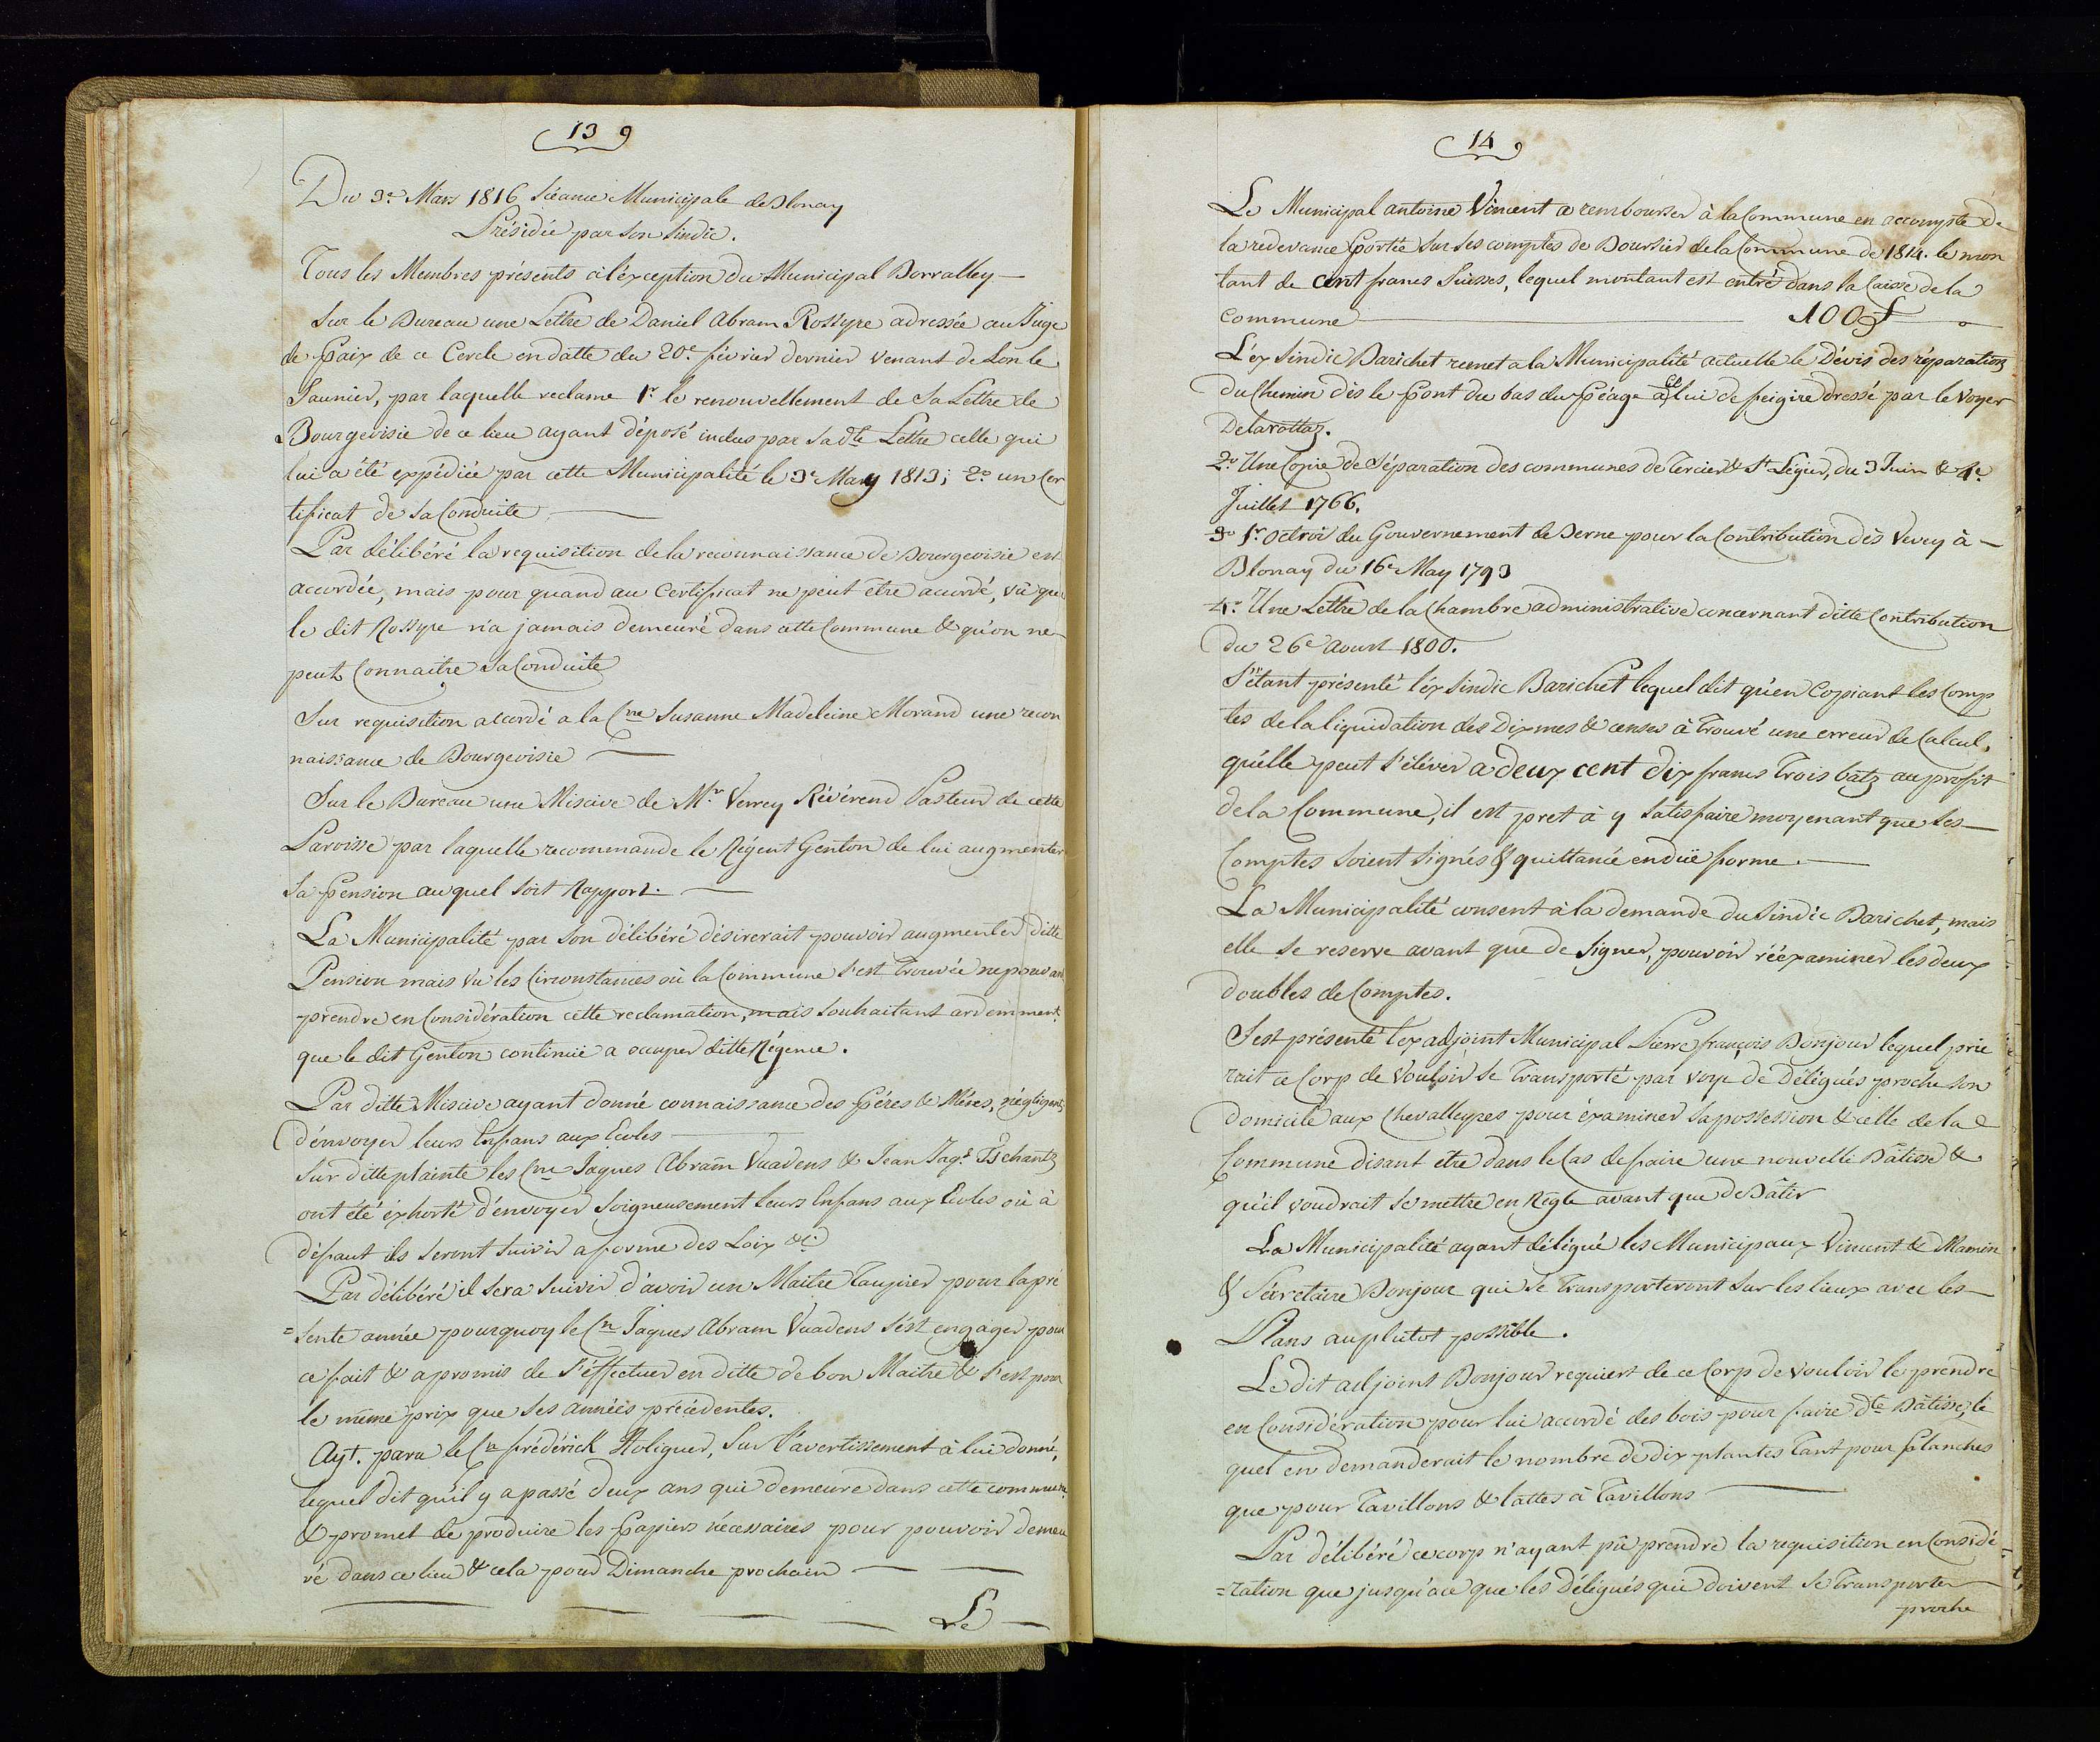 13
Du 3e Mars 1816 Séance Municipale de Blonay
Présidée par son Sindic.
Tous les Membres présents a l'éxception du Municipal Borralley —
Sur le Bureau une Lettre de Daniel Abram Rossyre adressée au Juge
de Paix de ce Cercle en datte du 20e février dernier venant de Lon le
Saunier, par laquelle reclame 1r le renouvellement de Sa Lettre de
Bourgeoisie de ce lieu ayant déposé inclus par Sa dte Lettre celle qui
lui a été expédiée par cette Municipalité le 3e May 1813; 2o un Cer
tificat de Sa Conduite —
Par délibéré la requisition de la reconnaissance de Bourgeoisie est
accordée, mais pour quand au Certificat ne peut etre acordé, vû que
le dit Rossyre n'a jamais demeuré dans cette Commune & qu'on ne
peut Connaitre Sa Conduite
Sur requisition accordé a la Cne Susanne Madeleine Morand une recon
naissance de Bourgeoisie —
Sur le Bureau une Miscive de Mr Verrey Révérend Pasteur de cette
Paroisse par laquelle recommande le Régent Genton de lui augmenter
Sa Pension au quel soit Rapport. —
La Municipalité par son délibéré désirerait pouvoir augmenter ditte
Pension mais vu les Circonstances où la Commune s'est Trouvée ne pouvant
prendre en Considération cette reclamation, mais souhaitant ardemment
que le dit Genton continüe a ocuper ditte Régence.
Par ditte Miscive ayant donné connaissance des Péres & Méres, négligents
d'envoyer leurs Enfans aux Ecoles —
Sur ditte plainte les Cns Jaques Abram Vuadens & Jean Jaqs Tschantz
ont été éxhorté d'envoyer Soigneusement leurs Enfans aux Ecoles où à
défaut ils seront Suivis a forme des Loix &c
Par délibéré il sera Suivir d'avoir un Maitre Taupier pour la pré
=sente année pourquoy le Cn Jaques Abram Vuadens s'est engager pour
ce fait & a promis de S'éffectuer en ditte de bon Maitre & s'est pour
le même prix que les années précédentes.
Ayt. paru le Cn frédérick Holiguer, Sur l'avertissement à lui donné,
lequel dit qu'il y a passé deux ans qu'il demeure dans cette commune
& promet de produire les Papiers nécessaires pour pouvoir demeu
ré dans ce lieu & cela pour Dimanche prochain —
Le —
14
Le Municipal antoine Vincent a rembourser à la Commune en accompte de
la redevance portée sur ses comptes de Boursier de la Commune de 1814. le mon
tant de cent francs Suisses, lequel montant est entré dans la Caisse de la
Commune — 100 f —
L'ex Sindic Barichet remet a la Municipalité actuelle le Dévis des réparations
du Chemin dès le Pont du bas du Péage a Celui de feigire dressé par le Voyer
Delarottaz.
2o Une Copie de Séparation des communes de Tercier & St Légier, du 3 Juin & 4e
Juillet 1766.
3o 1r Octroi du Gouvernement de Berne pour la Contribution dès Vevey à —
Blonay du 16e May 1793
4o Une Lettre de la Chambre administrative concernant ditte Contribution
du 26e Aoust 1800.
S'étant présenté l'éx Sindic Barichet lequel dit qu'en Copiant les Comp
tes de la liquidation des Dixmes & censes à Trouvé une erreur de Calcul,
qu'elle peut S'éléver a deux cent dix francs Trois batz au profit
de la Commune, il est pret à y Satisfaire moyenant que les —
Comptes Soient Signés & quittancé en düe forme. —
La Municipalité consent à la demande du Sindic Barichet, mais
elle se reserve avant que de Signer, pouvoir rééxaminer les deux
doubles de Comptes.
S'est présenté l'ex adjoint Municipal Pierre françois Bonjour lequel prie
rait ce Corp de Vouloir se Transporté par voye de Délégués proche son
domicile aux Chevalleyres pour éxaminer Sa possession & celle de la
Commune disant etre dans le Cas de faire une nouvelle Bâtisse &
qu'il voudrait se mettre en Régle avant que de Bâtir
La Municipalité ayant délégué les Municipaux Vincent & Mamin
& Sécretaire Bonjour qui se Transporteront sur les lieux avec les —
Plans au plutot possible.
Le dit adjoint Bonjour requiert de ce Corp de Vouloir le prendre
en Considération pour lui accordé des bois pour faire dte Bâtisse, le
quel en demanderait le nombre de dix plantes Tant pour Planches
que pour Tavillons & lattes à Tavillons —
Par délibéré ce corp n'ayant pû prendre la requisition en Considé
=ration que jusqu'a ce que les Délégués qui doivent se Transporter
proche